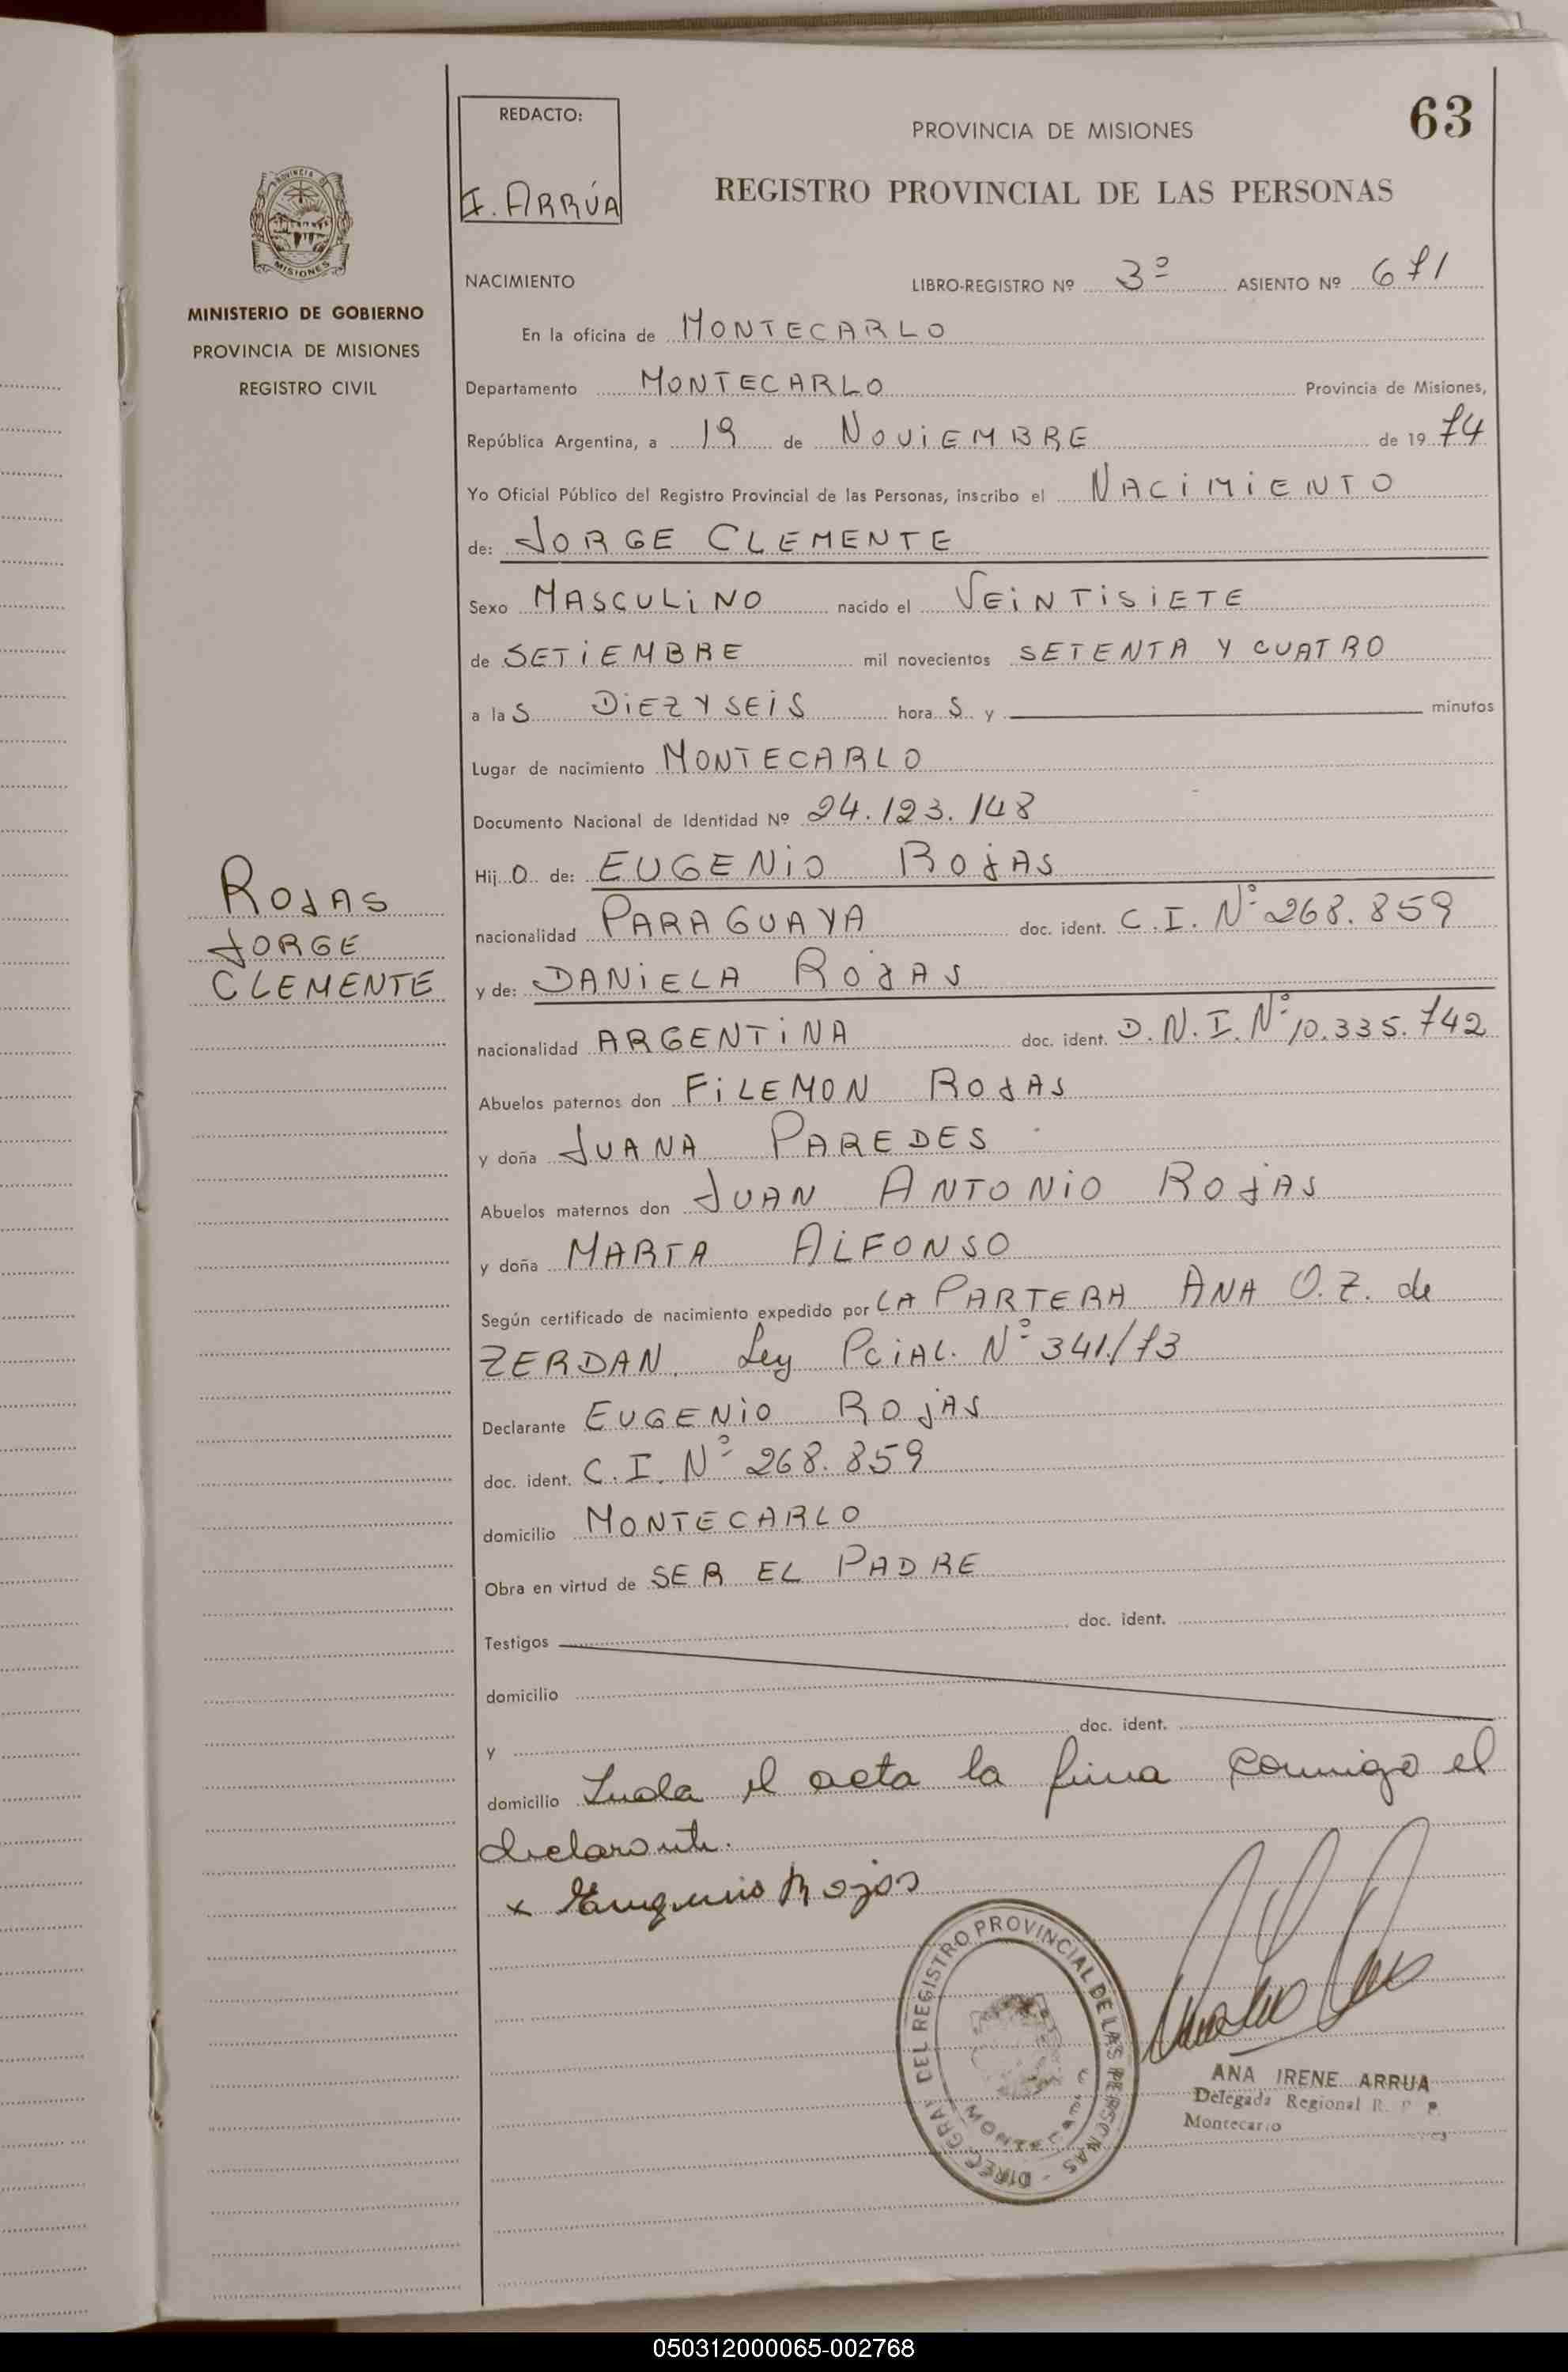 63
REDACTO:
I. ARRÚA
PROVINCIA DE MISIONES
REGISTRO PROVINCIAL DE LAS PERSONAS
PROVINCIA DE
MISIONES
MINISTERIO DE GOBIERNO
PROVINCIA DE MISIONES
REGISTRO CIVIL
NACIMIENTO LIBRO-REGISTRO Nº 3º ASIENTO Nº 671
En la oficina de MONTECARLO
Departamento MONTECARLO Provincia de Misiones,
República Argentina, a 19 de NOVIEMBRE de 19 74
Yo Oficial Público del Registro Provincial de las Personas, inscribo el NACIMIENTO
de: JORGE CLEMENTE
Sexo MASCULINO nacido el VEINTISIETE
de SETIEMBRE mil novecientos SETENTA Y CUATRO
a las DIEZ Y SEIS horas y minutos
Lugar de nacimiento MONTECARLO
Documento Nacional de Identidad Nº 24.123.148
Hijo de: EUGENIO ROJAS
nacionalidad PARAGUAYA doc. ident. C.I. Nº 268.859
y de: DANIELA ROJAS
nacionalidad ARGENTINA doc. ident. D.N.I. Nº 10.335.742
ROJAS
JORGE
CLEMENTE
Abuelos paternos don FILEMON ROJAS
y doña JUANA PAREDES
Abuelos maternos don JUAN ANTONIO ROJAS
y doña MARTA ALFONSO
Según certificado de nacimiento expedido por LA PARTERA ANA O.Z. de
ZERDAN. Ley PCIAL. Nº 341/73
Declarante EUGENIO ROJAS
doc. ident. C.I. Nº 268.859
domicilio MONTECARLO
Obra en virtud de SER EL PADRE
Testigos doc. ident.
domicilio
y doc. ident.
domicilio Leida el acta la firma conmigo el
declarante.
x Eugenio Rojas
DIREC. GRAL. DEL REGISTRO PROVINCIAL DE LAS PERSONAS -
MONTECARLO
ANA IRENE ARRUA
Delegada Regional R. P. P.
Montecarlo
050312000065-002768